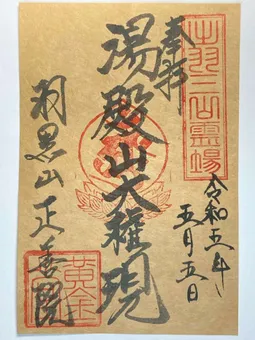 出羽三山霊場
奉拝
令和五年
五月五日
湯殿山大権現
羽黒山正善院
黄金